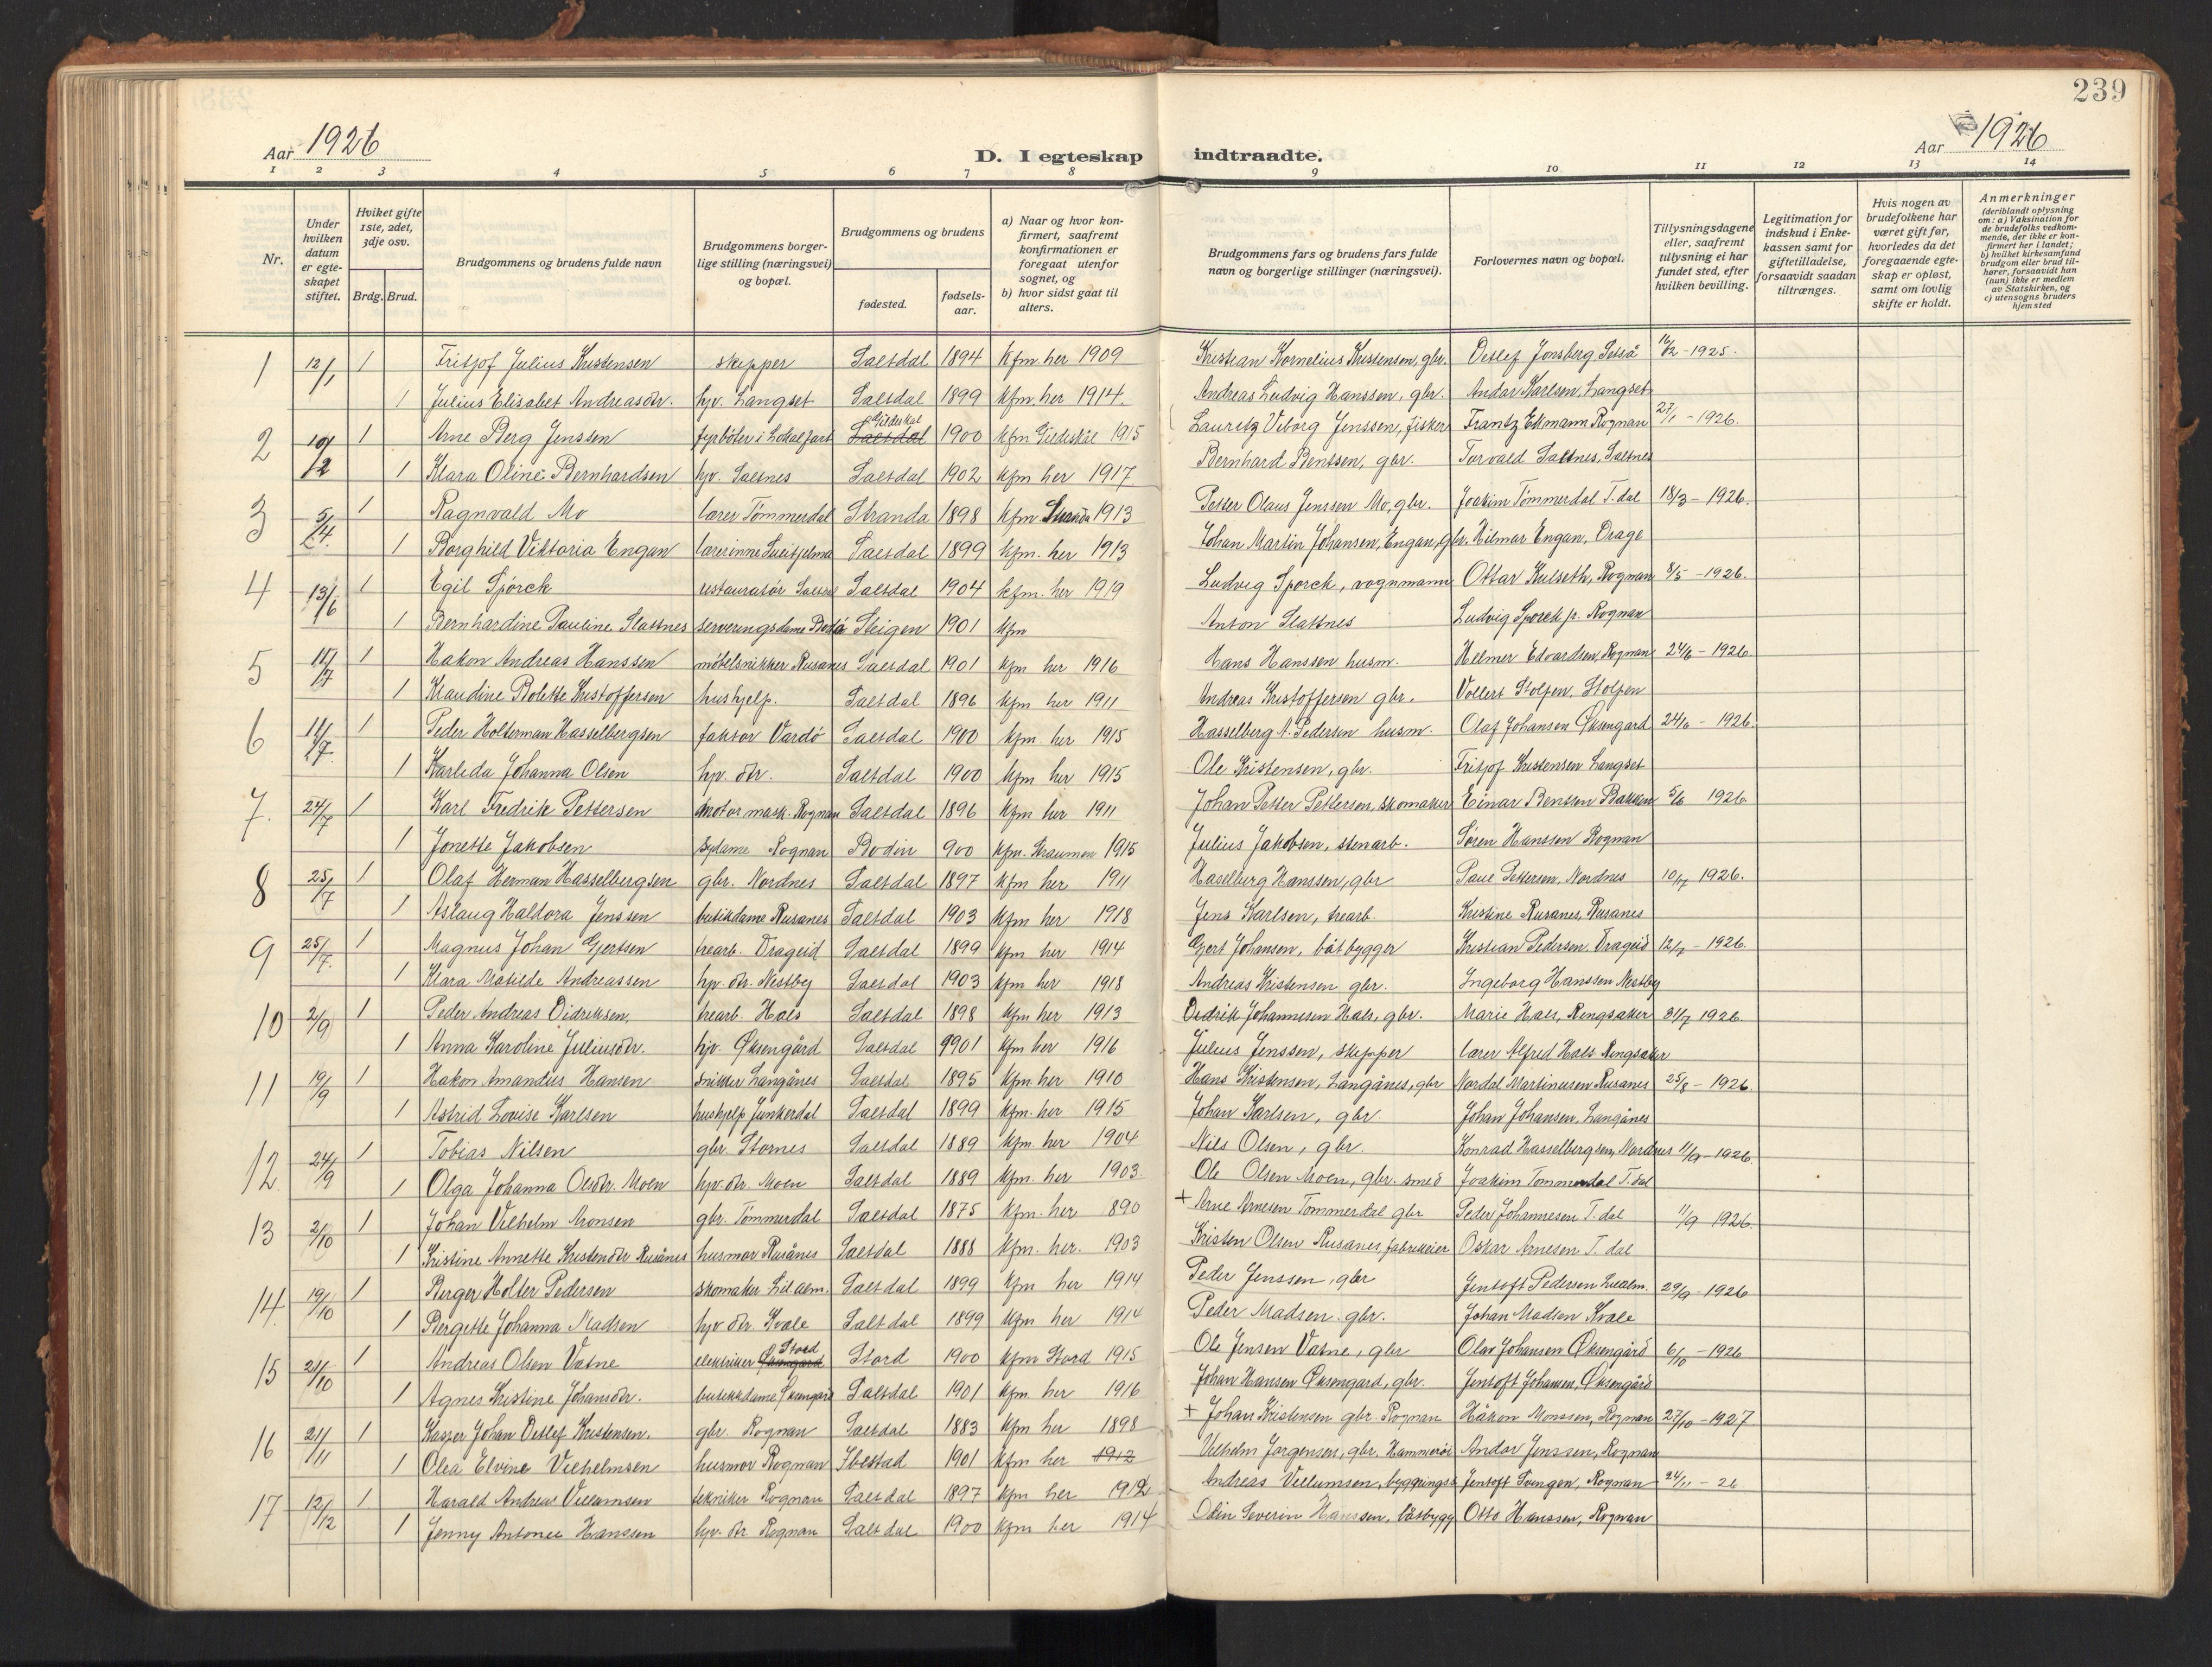 239
Aar 1926
D. I egteskap indtraadte.
Aar 1926
1 2 3 4 5 6 7 8 9 10 11 12 13 14
Nr.
Under hvilken datum er egteskapet stiftet.
Hvilket gifte 1ste, 2det, 3dje osv.
Brdg. Brud.
Brudgommens og brudens fulde navn
Brudgommens borgerlige stilling (næringsvei) og bopæl.
Brudgommens og brudens
fødested.
fødselsaar.
a) Naar og hvor konfirmert, saafremt konfirmationen er foregaat utenfor sognet, og
b) hvor sidst gaat til alters.
Brudgommens fars og brudens fars fulde navn og borgerlige stillinger (næringsvei).
Forlovernes navn og bopæl.
Tillysningsdagene eller, saafremt tillysning ei har fundet sted, efter hvilken bevilling.
Legitimation for indskud i Enkekassen samt for giftetilladelse, forsaavidt saadan tiltrænges.
Hvis nogen av brudefolkene har været gift før, hvorledes da det foregaaende egteskap er opløst, samt om lovlig skifte er holdt.
Anmerkninger (deriblandt oplysning om: a) Vaksination for de brudefolks vedkommende, der ikke er konfirmert her i landet; b) hvilket kirkesamfund brudgom eller brud tilhører, forsaavidt han (hun) ikke er medlem av Statskirken, og c) utensogns bruders hjemsted
1 12/1 1 Fritjof Julius Kristensen skipper Saltdal 1894 kfm. her 1909 Kristian Kornelius Kristensen, gbr. Detlef Jonsberg Setså 16/12-1925.
1 Julius Elisabet Andreasdtr. hjv. Langset Saltdal 1899 kfm. her 1914 Andreas Ludvig Hanssen, gbr. Andor Karlsen, Langset
2 10/2 1 Arne Berg Jenssen fyrbøter i Lokalfart Saltdal Gildeskål 1900 kfm Gildeskål 1915 Lauritz Viborg Jenssen, fisker Frantz Ekmann Rognan 27/1 - 1926.
1 Klara Oline Bernhardsen hjv. Saltnes Saltdal 1902 kfm her 1917 Bernhard Bentsen, gbr. Torvald Saltnes, Saltnes
3 5/4 1 Ragnvald Mo lærer Tømmerdal Stranda 1898 kfm Stranda 1913 Petter Olaus Jenssen Mo, gbr. Joakim Tømmerdal T.dal 18/3 - 1926.
1 Borghild Viktoria Engan lærerinne Sulitjelma Saltdal 1899 kfm. her 1913 Johan Martin Johansen, Engan, gbr. Hilmar Engan, Drage
4 13/6 1 Egil Spørck restauratør Saltdal Saltdal 1904 kfm. her 1919 Ludvig Spørck, vognmann Ottar Hulseth, Rognan 8/5 - 1926.
1 Bernhardine Pauline Slattnes serveringsdame Bodø Steigen 1901 kfm Anton Slattnes Ludvig Spørck jr. Rognan
5 11/7 1 Hakon Andreas Hanssen møbelsnikker Rusanes Saltdal 1901 kfm her 1916 Hans Hanssen husm. Helmer Edvardsen, Rognan 24/6 - 1926.
1 Klaudine Bolette Kristoffersen hushjelp. Saltdal 1896 kfm her 1911 Andreas Kristoffersen gbr. Vollert Stolpen, Stolpen
6 11/7 1 Peder Holterman Hasselbergsen faktor Vardø Saltdal 1900 kfm her 1915 Hasselberg A. Pedersen husm. Olaf Johansen Øksengard 24/6 - 1926.
1 Karleda Johanna Olsen hjv. dtr. Saltdal 1900 kfm her 1915 Ole Kristensen, gbr. Fritjof Kristensen Langset
7. 24/7 1 Karl Fredrik Pettersen motormask. Rognan Saltdal 1896 kfm her 1911 Johan Petter Pettersen, skomaker Einar Bentsen Bakken 5/6 1926
1 Jonette Jakobsen sydame Rognan Bodin 900 kfm. Straumen 1915 Julius Jakobsen, stenarb. Søren Hanssen Rognan
8 25/7 1 Olaf Herman Hasselbergsen gbr. Nordnes Saltdal 1897 kfm her 1911 Haselberg Hanssen, gbr Paul Pettersen, Nordnes 10/7 1926.
1 Aslaug Haldora Jenssen butikdame Rusanes Saltdal 1903 kfm her 1918 Jens Karlsen, trearb. Kristine Rusanes, Rusanes
9 25/7. 1 Magnus Johan Gjertsen trearb. Drageid Saltdal 1899 kfm her 1914 Gjert Johansen, båtbygger Kristian Pedersen, Drageid 12/7 - 1926.
1 Klara Matilde Andreassen hjv. dtr. Nestby Saltdal 1903 kfm her 1918 Andreas Kristensen gbr. Ingeborg Hanssen Nestby
10 2/9 1 Peder Andreas Didriksen. trearb. Hals Saltdal 1898 kfm her 1913 Didrik Johannesen Hals, gbr. Marie Hals, Ringsaker 31/7 1926.
1 Anna Karoline Juliusdtr. hjv. Øksengård Saltdal 1901 kfm her 1916 Julius Jenssen, skipper lærer Alfred Hals Ringsaker
11 19/9 1 Hakon Amandus Hansen snikker Langånes Saltdal 1895 kfm. her 1910 Hans Kristensen, Langånes, gbr Nordal Martinusen Rusanes 25/8 - 1926.
1 Astrid Lovise Karlsen hushjelp Junkerdal Saltdal 1899 kfm. her 1915 Johan Karlsen, gbr. Johan Johansen, Langånes
12 24/9 1 Tobias Nilsen gbr. Stornes Saltdal 1889 kfm. her 1904 Nils Olsen, gbr. Konrad Hasselbergsen, Nordnes 11/9 - 1926.
1 Olga Johanna Olsdtr. Moen hjv. dtr. Moen Saltdal 1889 kfm. her 1903 Ole Olsen Moen, gbr. smed Joakim Tømmerdal T.dal
13 2/10 1 Johan Vilhelm Aronsen gbr. Tømmerdal Saltdal 1875 kfm. her 890 + Arne Arnesen Tømmerdal gbr Peder Johannesen T. dal 11/9 1926.
1 Kristine Annette Kristendtr Rusånes husmor Rusånes Saltdal 1888 kfm. her. 1903 Kristen Olsen Rusanes, fabrikkeier Oskar Arnesen T. dal
14 19/10 1 Birger Holter Pedersen skomaker Lilalm. Saltdal 1899 kfm her 1914 Peder Jenssen, gbr Jentoft Pedersen Lilalm. 29/9 - 1926
1 Bergette Johanna Madsen hjv dtr. Kvæle Saltdal 1899 kfm her 1914 Peder Madsen gbr. Johan Madsen Kvæle
15 21/10 1 Andreas Olsen Vatne elektriker Øksengard Stord Stord 1900 kfm Stord 1915 Ole Jensen Vatne, gbr Olav Johansen Øksengård 6/10 - 1926
1 Agnes Kristine Johansdtr. butikkdame Øksengård Saltdal 1901 kfm her 1916 Johan Hansen Øksengard, gbr. Jentoft Johansen, Øksengård
16 21/11 1 Kasper Johan Detlef Kristensen. gbr. Rognan Saltdal 1883 kfm her 1898 + Johan Kristensen gbr. Rognan Håkon Monssen, Rognan 27/10 - 1927.
1 Olea Elvine Vilhelmsen husmor Rognan Ibestad 1901 kfm her 1912 Vilhelm Jørgensen, gbr. Hammerøi Andor Jenssen, Rognan
17 12/12 1 Harald Andreas Villumsen tekniker Rognan Saltdal 1897 kfm her 1912 Andreas Villumsen, byggningss. Jentoft Svingen, Rognan 24/11 - 26
1 Jenny Antonie Hanssen hjv. dtr Rognan Saltdal 1900 kfm her 1914 Odin Severin Hanssen, båtbygg Otto Hanssen, Rognan